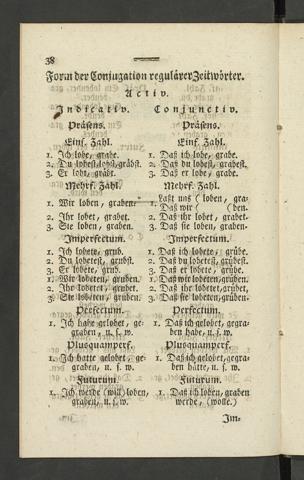 38
Form der Conjugation regulärer Zeitwörter.
Activ.
Indicativ. Conjunctiv.
Präsens. Präsens.
Einf. Zahl. Einf. Zahl.
1. Ich lobe, grabe. 1. Daß ich lobe, grabe.
2. Du lobest, gräbst. 2. Daß du lobest, grabest.
3. Er lobt, gräbt. 3. Daß er lobe, grabe.
Mehrf. Zahl. Mehrf. Zahl.
1. Wir loben, graben. 1. Laßt uns (loben, gra-
Daß wir (ben.
2. Ihr lobet, grabet. 2. Daß ihr lobet, grabet.
3. Sie loben, graben. 3. Daß sie loben, graben.
Imperfectum. Imperfectum.
1. Ich lobete, grub. 1. Daß ich lobete, grübe.
2. Du lobetest, grubst. 2. Daß du lobetest, grübest.
3. Er lobete, grub. 3. Daß er lobete, grübe.
1. Wir lobeten, gruben. 1. Daß wir lobeten, grüben.
2. Ihr lobetet, grubet. 2. Daß ihr lobetet, grübet.
3. Sie lobeten, gruben. 3. Daß sie lobeten, grüben.
Perfectum. Perfectum.
1. Ich habe gelobet, ge- 1. Daß ich gelobet, gegra-
graben, u. s. w. ben habe, u. s. w.
Plusquamperf. Plusquamperf.
1. Ich hatte gelobet, ge- 1. Daß ich gelobet, gegra-
graben, u. s. w. ben hätte, u. s. w.
Futurum. Futurum.
1. Ich werde (will) loben, 1. Daß ich loben, graben
graben, u. s. w. werde, (wolle.)
Im-